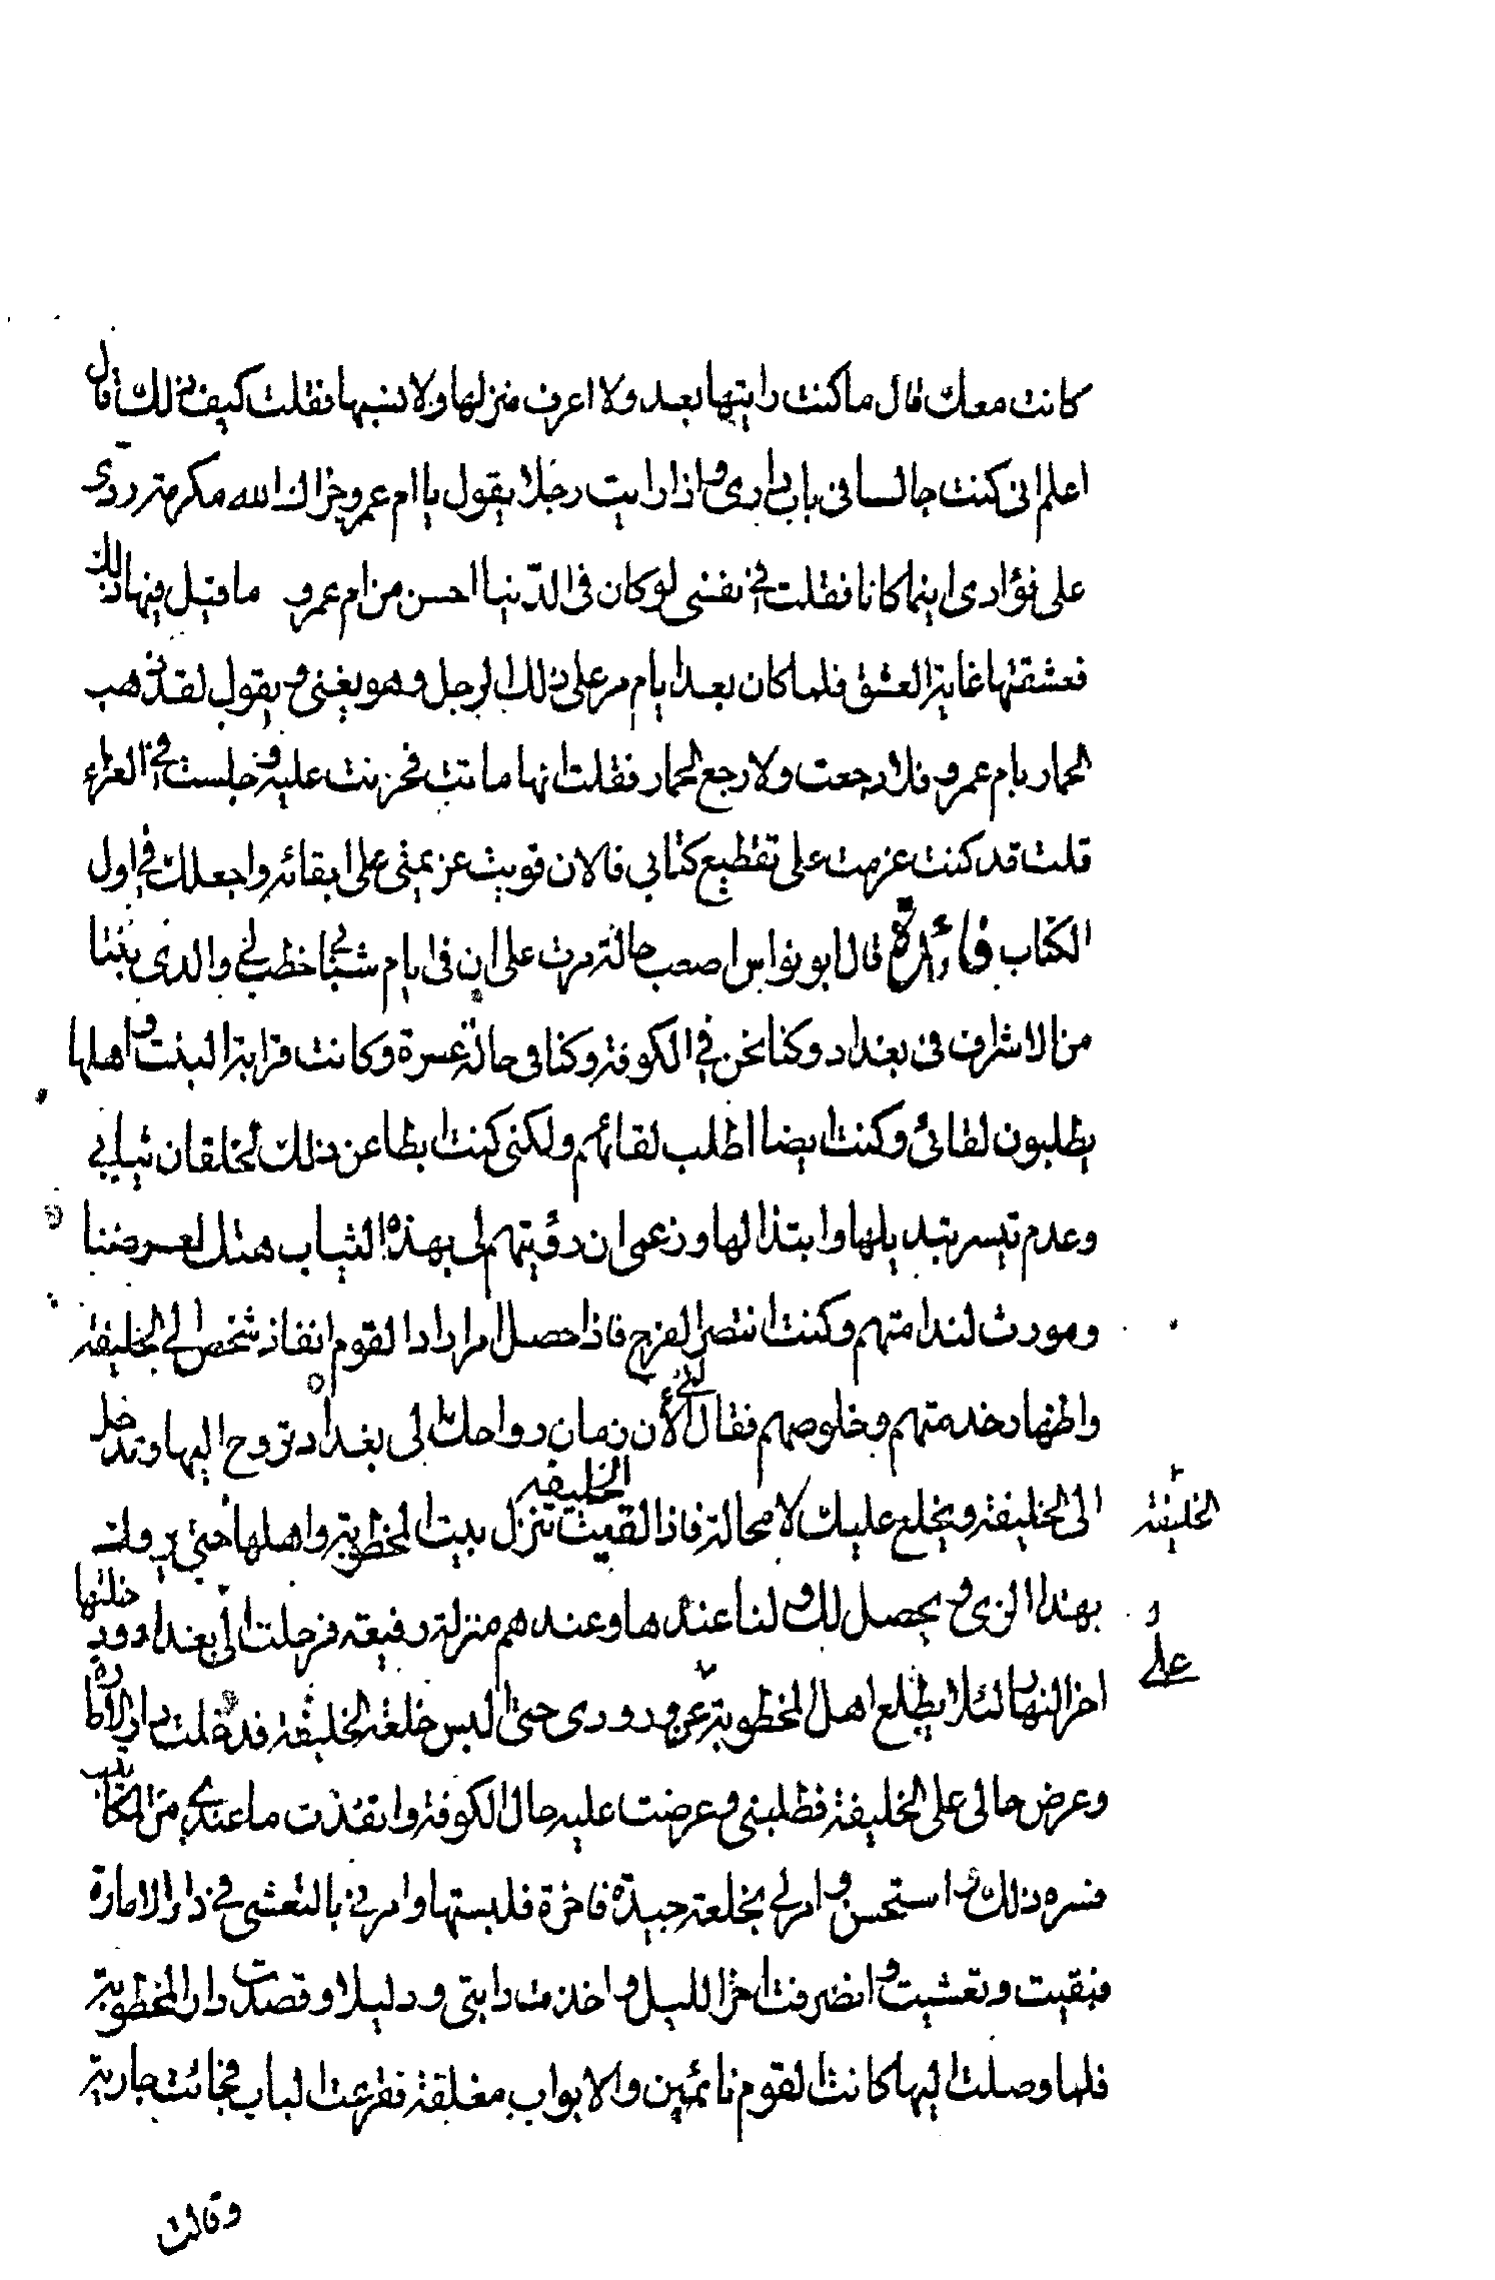 كانت معك قال ما كنت رايتها بعد ولا اعرف منزلها ولا نسبها فقلت كيف ذلك قال
اعلم انى كنت جالسا فى باب دارى واذا رايت رجلا يقول يا ام عمرو جزاك الله مكرمة ردّى
على فؤادى اينما كانا فقلت فى نفسى لو كان فى الدّنيا احسن من ام عمرو ما قيل فيها ذلك
فعشقتها غاية العشق فلما كان بعد ايام مر على ذلك الرجل وهو يغنى ويقول لقد ذهب
الحمار بام عمرو فلا رجعت ولا رجع الحمار فقلت انها ماتت فحزنت عليه وجلست فى العزاء
قلت قد كنت عزمت على تقطيع كتابى فالان قويت عزيمتى على ابقائه واجعلك فى اول
الكتاب فائدة قال ابو نواس اصعب حالة مرت على ان فى ايام شبابى خطب لى والدى بنتا
من الاشراف فى بغداد وكنا نحن فى الكوفة وكنا فى حالة عسرة وكانت قرابة البنت واهلها
يطلبون لقائى وكنت ايضا اطلب لقائهم ولكنى كنت ابطا عن ذلك لخلقان ثيابى
وعدم تيسر تبديلها وابتذالها وزعمى ان رؤيتهم لى بهذه الثياب هتك لعرضنا
ومورث لندامتهم وكنت انتصر الفرج فاذا حصل امر اراد القوم انفاذ شخص الى الخليفة
واظهار خدمتهم وخلوصهم فقال لى الأن زمان رواحك الى بغداد تروح اليها وتدخل
الى الخليفة ويخلع عليك لا محالة فاذا لقيت الخليفة تنزل بيت المخطوبة واهلها حتى يروك
بهذا الزى ويحصل لك ولنا عندها وعندهم منزلة رفيعة فرحلت الى بغداد ودخلتها
اخر النهار لئلا يطلع اهل المخطوبة عن ورودى حتى البس خلعة الخليفة فدخلت دار الامارة
وعرض حالى على الخليفة فطلبنى وعرضت عليه حال الكوفة وانفذت ما عندى من المكاتيب
فسره ذلك واستحسن وامر لى بخلعة جيدة فاخرة فلبستها وامرنى بالتعشى فى دار الامارة
فبقيت وتعشيت وانصرفت اخر الليل واخذت دابتى ودليلا وقصدت دار المخطوبة
فلما وصلت اليها كانت القوم نائمين والابواب مغلقة فقرعت الباب فجائت جارية
وقالت
الخليفة
على